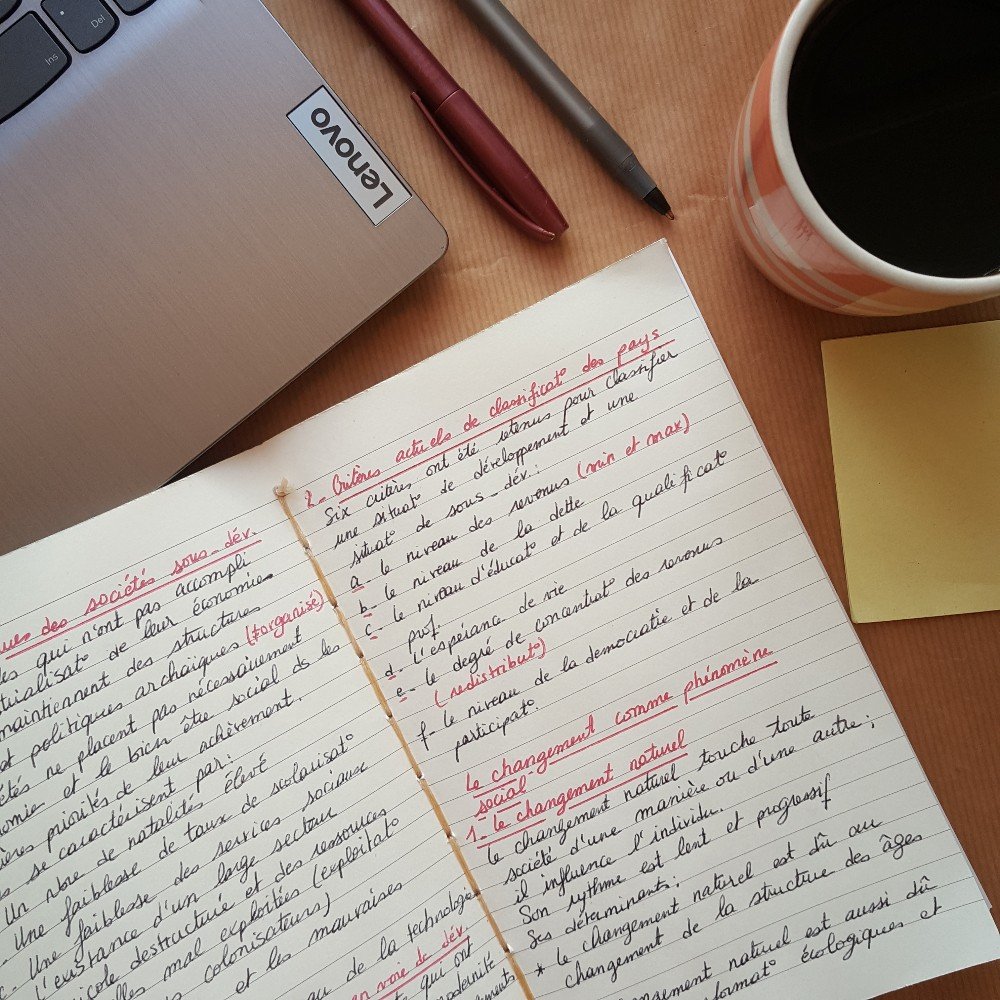 Ins
Del
Lenovo
sociétés sous-dév.
qui n'ont pas accompli
de leur économie
maintiennent des structures
et politiques archaïques (torganisé)
ne placent pas nécessairement
et le bien être social ds les
priorités de leur achèvement.
se caractérisent par:
Un nbre de natalités élevé
Une faiblesse de taux de scolarisat°
Une faiblesse des services sociaux
L'existance d'un large secteur
destructuré et des ressources
mal exploitées (exploitat°
colonisateurs)
et les mauvaises
de la technologie
en voie de dév.
qui ont
2- Critères actuels de classificat° des pays
Six critères ont été retenus pour classifier
une situat° de développement et une
situat° de sous-dév.:
a- le niveau des revenus (min et max)
b- le niveau de la dette
c- le niveau d'éducat° et de la qualificat°
prof.
d- L'espérance de vie
e- le degré de concentrat° des revenus
(redistribut°)
f- le niveau de la democratie et de la
participat°.
Le changement comme phénomène
social
1- Le changement naturel
Le changement naturel touche toute
société d'une manière ou d'une autre;
il influence l'individu.
Son rythme est lent et progressif
Ses déterminants:
* Le changement naturel est dû au
changement de la structure des âges
naturel est aussi dû
écologiques et